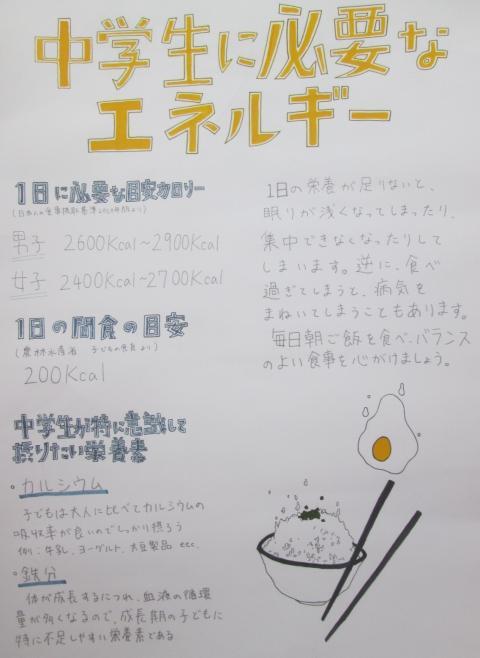 中学生に必要な
エネルギー
1日に必要な目安カロリー
男子 2600Kcal~2900Kcal
女子 2400Kcal~2700Kcal
1日の間食の目安
(農林水産省 子どもの食育より)
200Kcal
中学生が特に意識して
摂りたい栄養素
・カルシウム
子どもは大人に比べてカルシウムの
吸収率が良いのでしっかり摂ろう
例:牛乳、ヨーグルト、大豆製品 etc.
・鉄分
体が成長するにつれ、血液の循環
量が多くなるので、成長期の子どもに
特に不足しやすい栄養素である
1日の栄養が足りないと、
眠りが浅くなってしまったり、
集中できなくなったりして
しまいます。逆に、食べ
過ぎてしまうと、病気を
まねいてしまうこともあります。
毎日朝ご飯を食べ、バランス
のよい食事を心がけましょう。